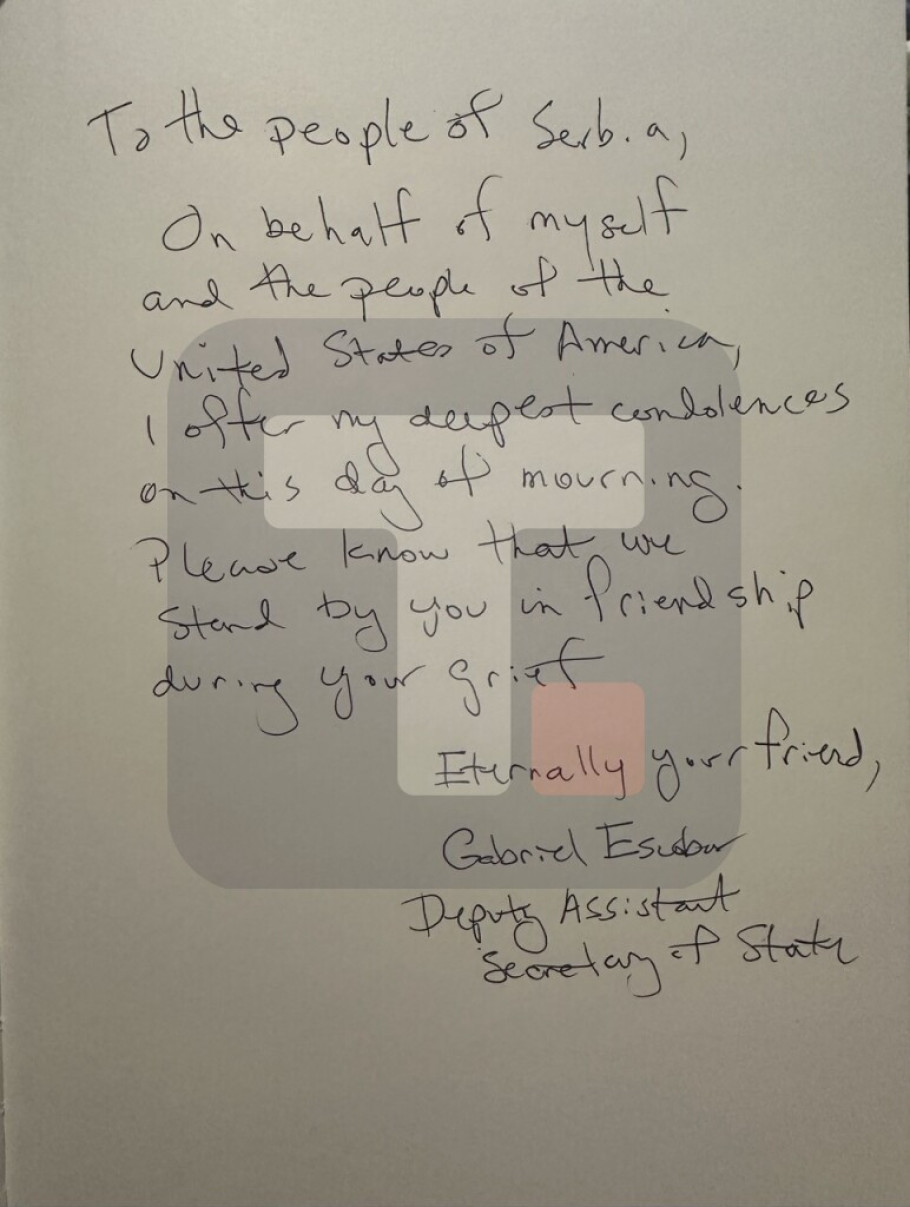 To the people of Serbia,
On behalf of myself
and the people of the
United States of America,
I offer my deepest condolences
on this day of mourning.
Please know that we
stand by you in friendship
during your grief
Eternally your friend,
Gabriel Escobar
Deputy Assistant
Secretary of State
T